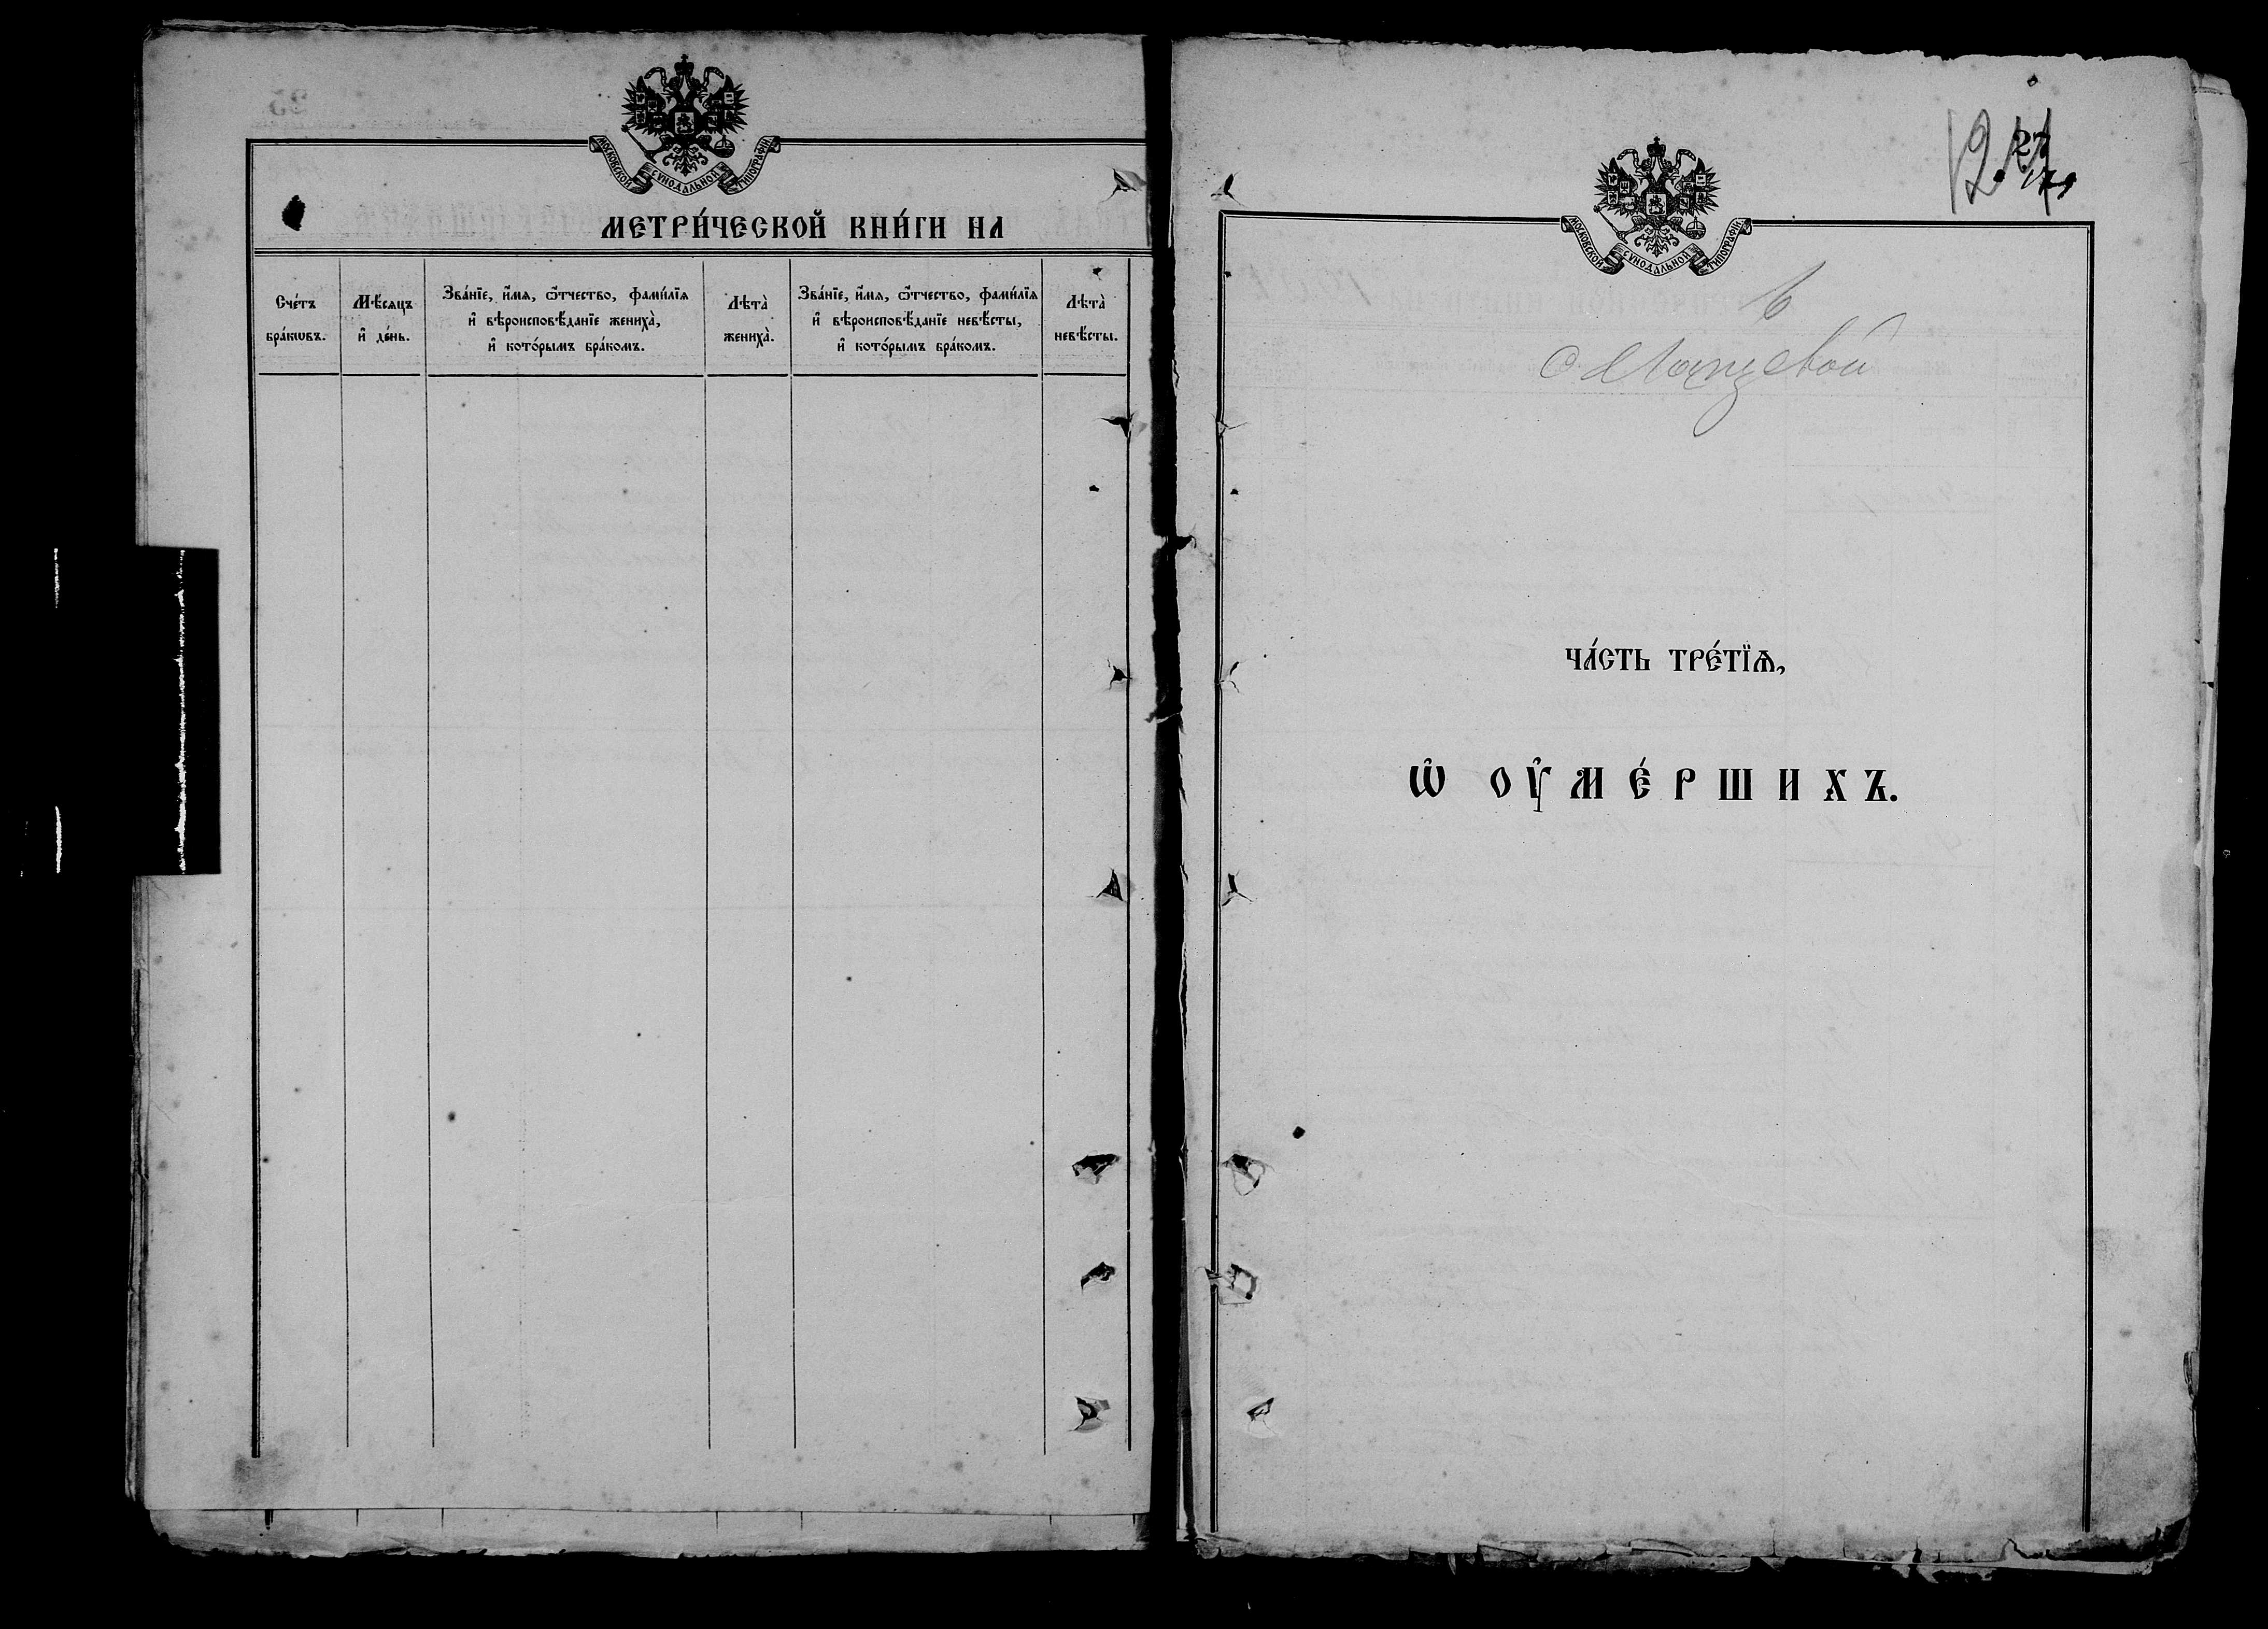 МОСКОВСКОЙ СѴНОДАЛЬНОЙ ТИПОГРАФІИ
МЕТРИ́ЧЕСКОЙ КНИ́ГИ НА
Сче́тъ
бра́кѡвъ.
Мѣ́сяцъ
и҆ де́нь.
Зва́нїе, и҆́мя, ѻ҆́тчество, фами́лїя
и҆ вѣроисповѣ́данїе жениха̀,
и҆ кото́рымъ бра́комъ.
Лѣта̀
жениха̀.
Зва́нїе, и҆́мя, ѻ҆́тчество, фами́лїя
и҆ вѣроисповѣ́данїе невѣ́сты,
и҆ кото́рымъ бра́комъ.
Лѣта̀
невѣ́сты.
27
МОСКОВСКОЙ СѴНОДАЛЬНОЙ ТИПОГРАФІИ
ЧА́СТЬ ТРЕ́ТЇѦ,
Ѡ҆ ОУ҆МЕ́РШИХЪ.